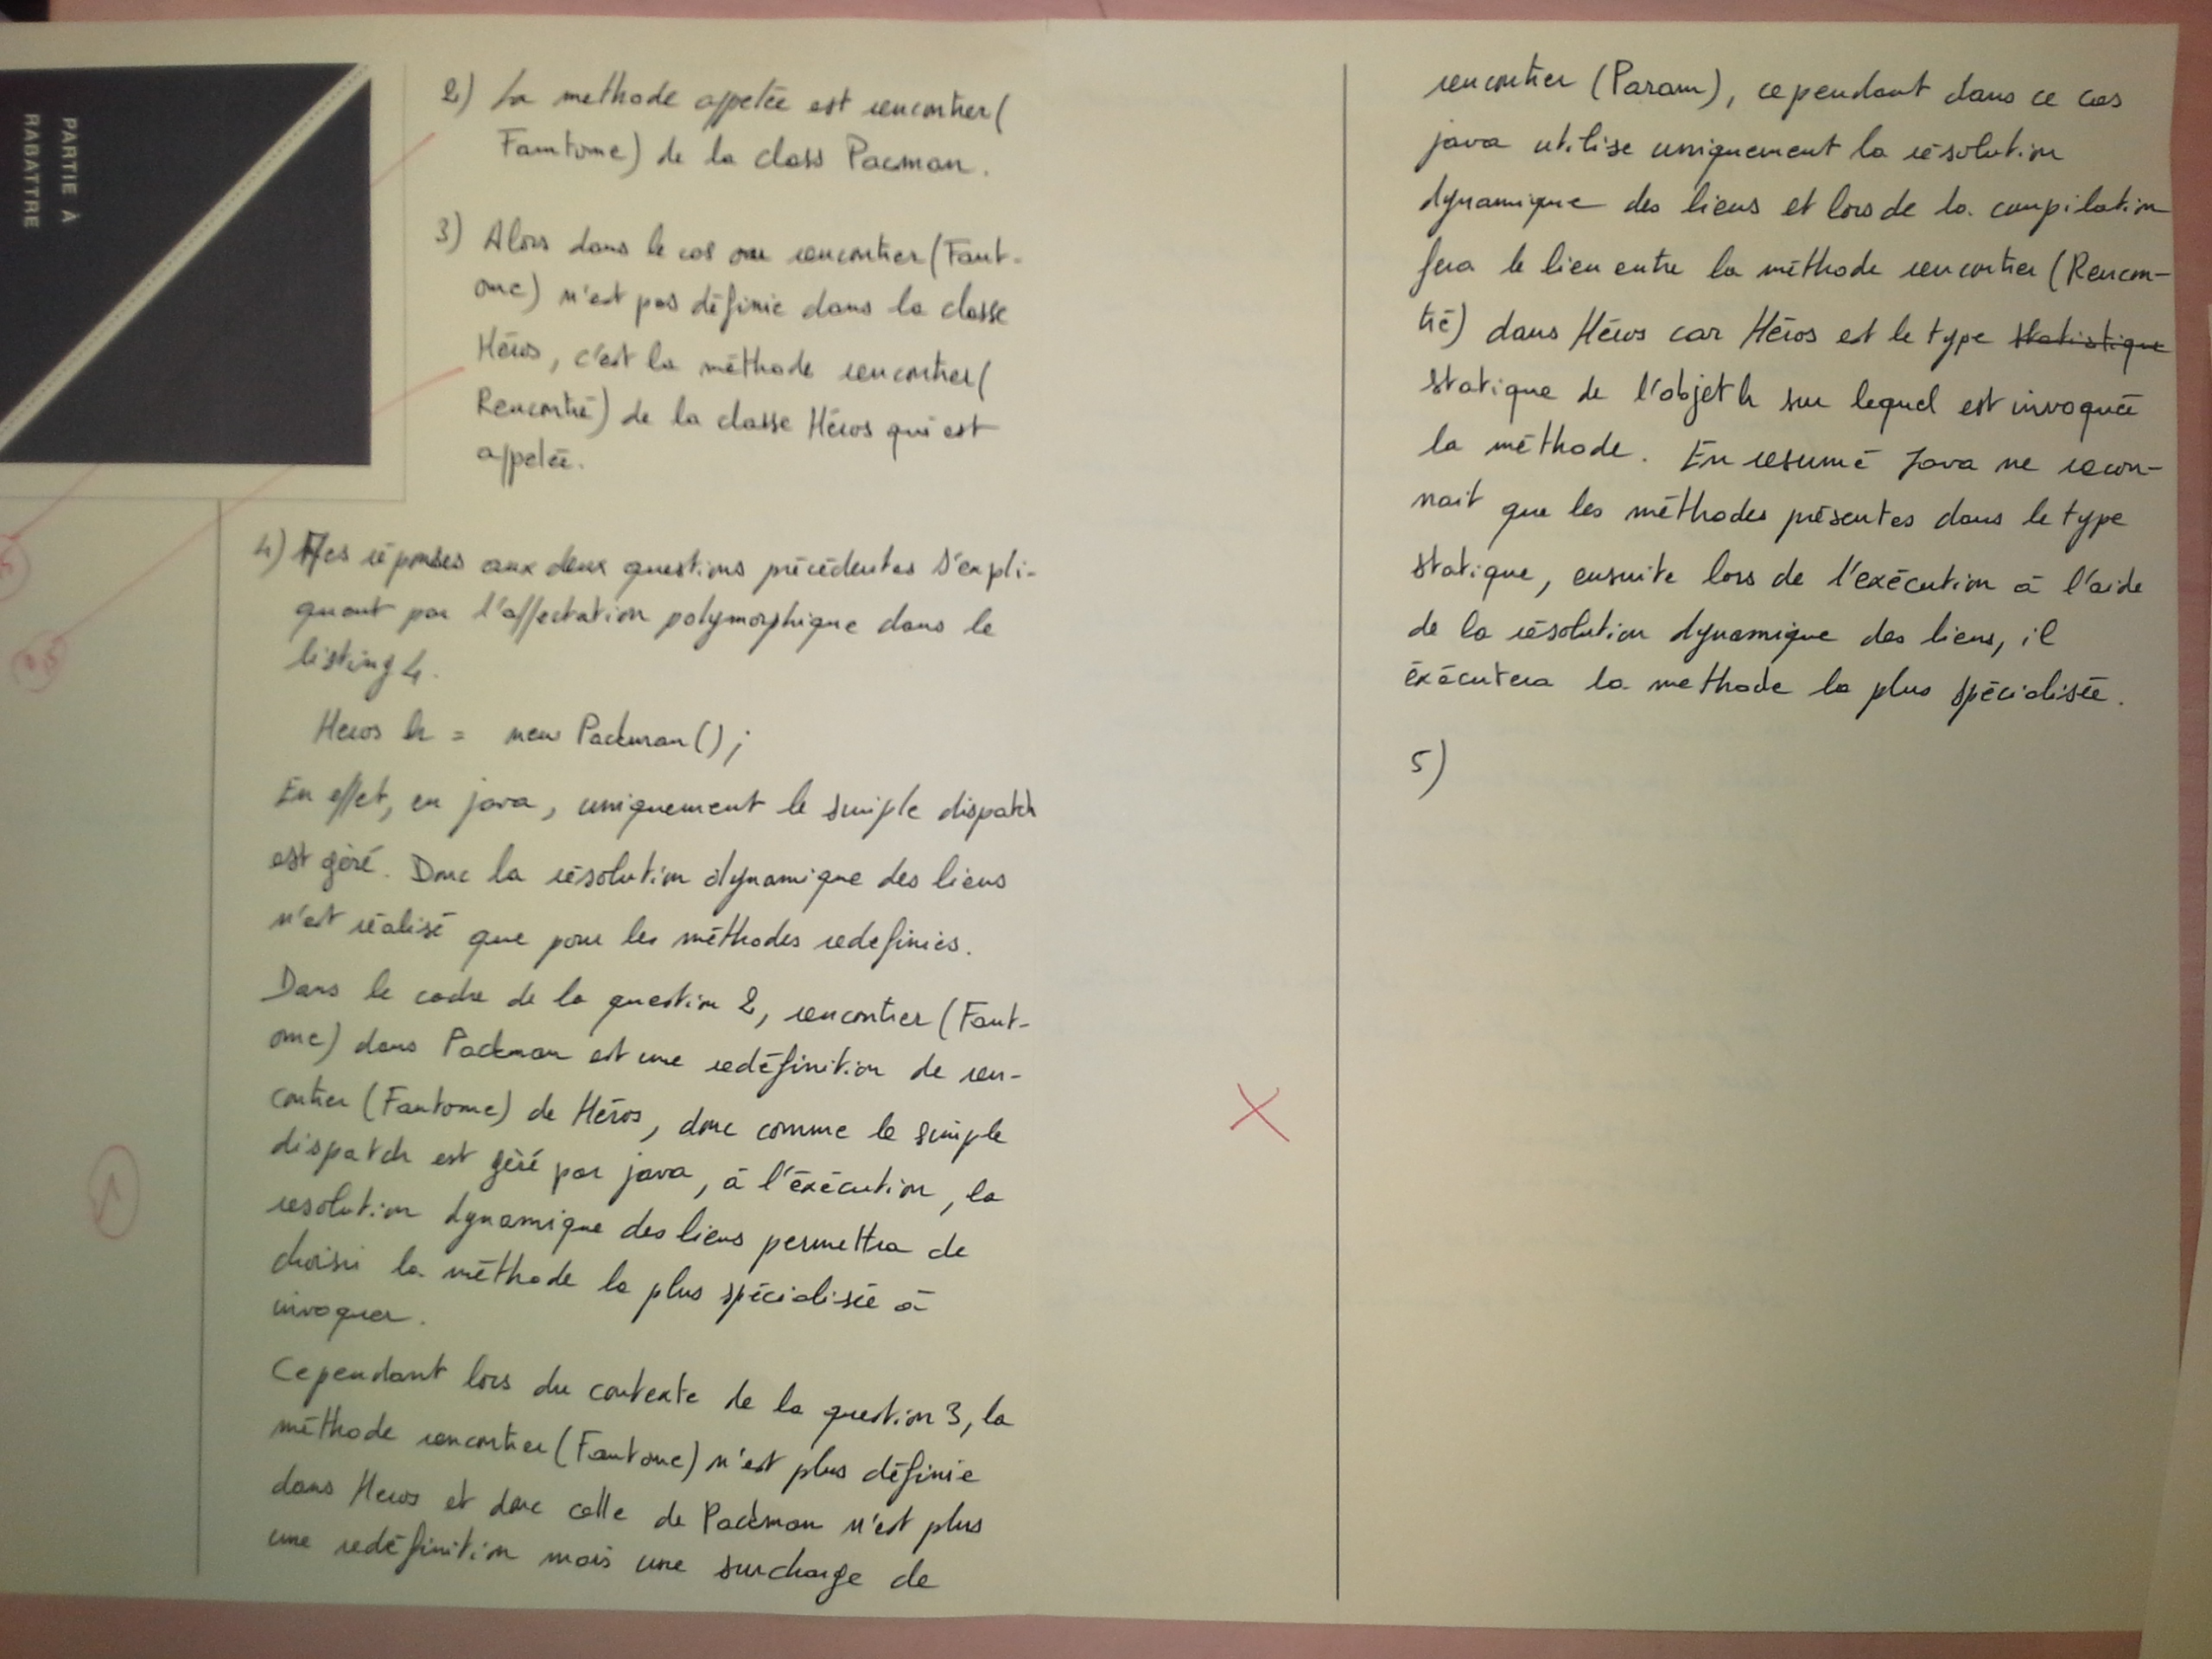 PARTIE À
RABATTRE
2) La methode appelée est rencontrer(
Famtome) de la class Pacman.
3) Alors dans le cas où rencontrer(Fant-
ome) n'est pas définie dans la classe
Héros, c'est la méthode rencontrer(
Rencontré) de la classe Héros qui est
appelée.
4) Mes réponses aux deux questions précédentes s'expli-
quent par l'affectation polymorphique dans le
listing 4.
Heros h = new Packman();
En effet, en java, uniquement le simple dispatch
est géré. Donc la résolution dynamique des liens
n'est réalisé que pour les méthodes redefinies.
Dans le cadre de la question 2, rencontrer (Fant-
ome) dans Packman est une redéfinition de ren-
contrer (Fantome) de Héros, donc comme le simple
dispatch est géré par java, à l'éxécution, la
resolution dynamique des liens permettra de
choisir la méthode la plus spécialisée à
invoquer.
Cependant lors du contexte de la question 3, la
méthode rencontrer (Fantome) n'est plus définie
dans Heros et donc celle de Packman n'est plus
une redéfinition mais une surcharge de
rencontrer (Param), cependant dans ce cas
java utilise uniquement la résolution
dynamique des liens et lors de la compilation
fera le lien entre la méthode rencontrer (Rencon-
tré) dans Héros car Héros est le type statistique
statique de l'objet h sur lequel est invoquée
la méthode. En resumé Java ne recon-
nait que les méthodes présentes dans le type
statique, ensuite lors de l'exécution à l'aide
de la résolution dynamique des liens, il
éxécutera la methode la plus spécialisée.
5)